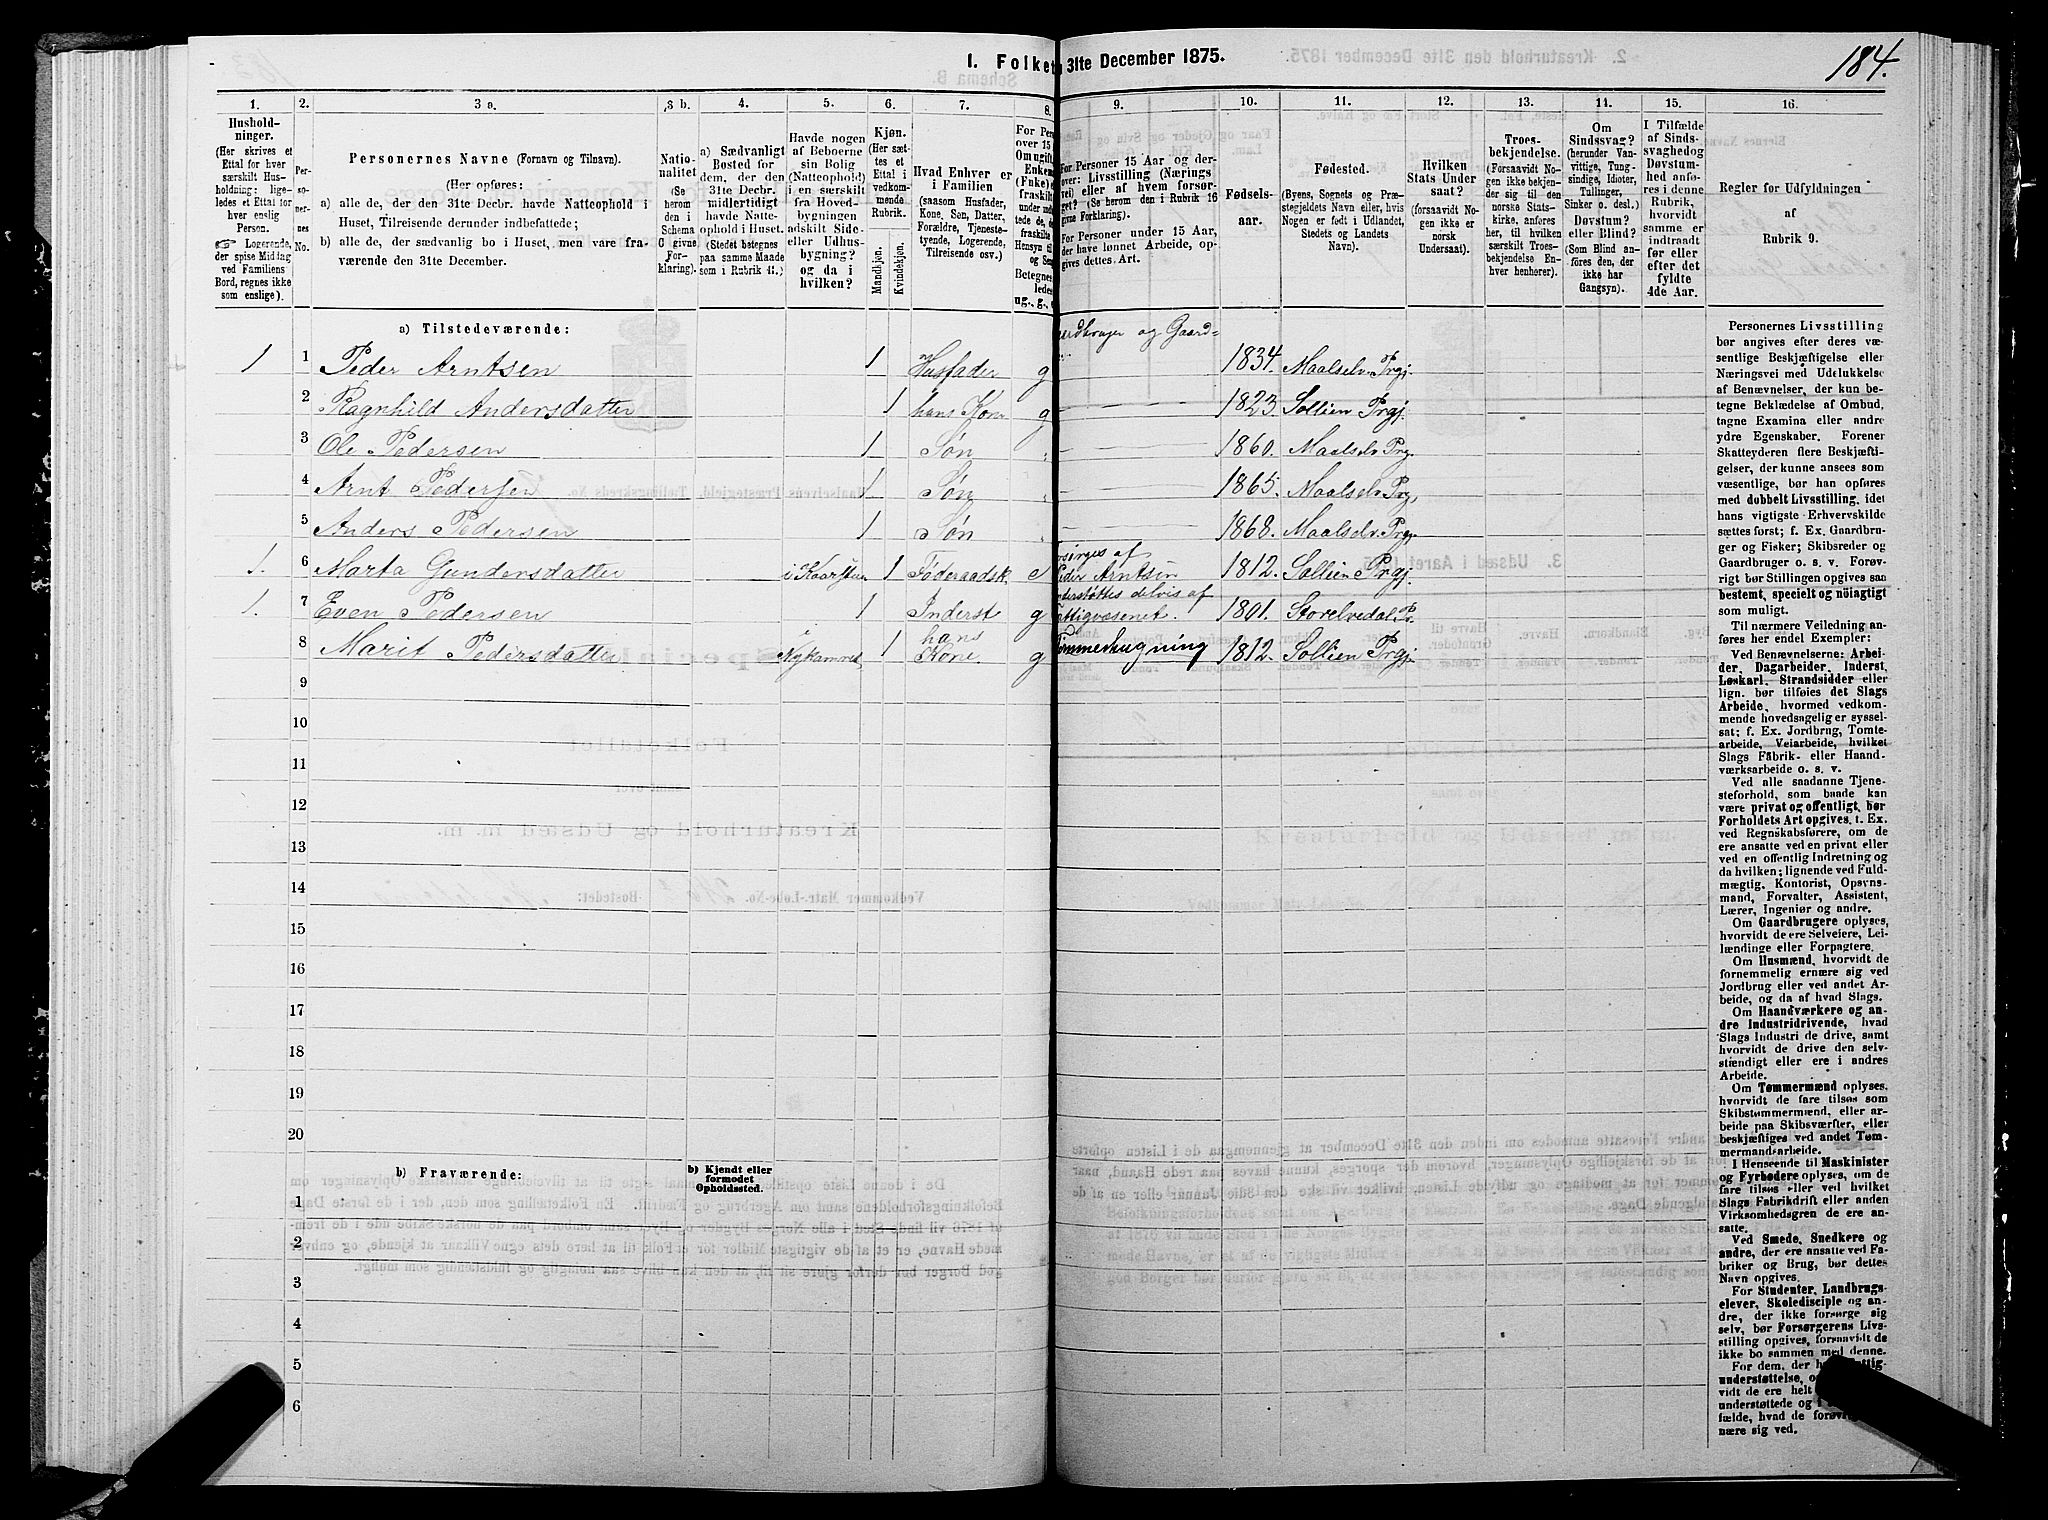 1. Folket
31te December 1875.
184.
1.
2.
3 a.
3 b.
4.
5.
6.
7.
8.
9.
10.
11.
12.
13.
14.
15.
16.
Hushold-
ninger.
(Her skrives et
Ettal for hver
særskilt Hus-
holdning; lige-
ledes et Ettal for
hver enslig
Person.
☞ Logerende,
der spise Middag
ved Familiens
Bord, regnes ikke
som enslige).
Per-
so-
ner-
nes
No.
Personernes Navne (Fornavn og Tilnavn).
(Her opføres:
a) alle de, der den 31te Decbr. havde Natteophold i
Huset, Tilreisende derunder indbefattede;
b) alle de, der sædvanlig bo i Huset, men vare fra-
værende den 31te December.
Natio-
nalitet
(Se
herom
den i
Schema
C givne
For-
klaring).
a) Sædvanligt
Bosted for
dem, der den
31te Decbr.
midlertidigt
havde Natte-
ophold i Huset.
(Stedet betegnes
paa samme Maade
som i Rubrik 11.)
Havde nogen
af Beboerne
sin Bolig
(Natteophold)
i en særskilt
fra Hoved-
bygningen
adskilt Side-
eller Udhus-
bygning?
og da i
hvilken?
Kjøn.
(Her sæt-
tes et
Ettal i
vedkom-
mende
Rubrik.
Mandkjøn.
Kvindekjøn.
Hvad Enhver er
i Familien
(saasom Husfader,
Kone, Søn, Datter,
Forældre, Tjeneste-
tyende, Logerende,
Tilreisende osv.)
For Pers
over 15
Om ugift,
Enkem
(Fuke)
fraskilt
For Personer 15 Aar og der-
over: Livsstilling (Nærings
vei) eller af hvem forsør-
get? (Se herom den i Rubrik 16
givne Forklaring).
For Personer under 15 Aar,
der have lønnet Arbeide, op-
gives dettes Art.
Fødsels-
aar.
Fødested.
(Byens, Sognets og Præ-
stegjeldets Navn eller, hvis
Nogen er født i Udlandet,
Stedets og Landets
Navn).
Hvilken
Stats Under
saat?
(forsaavidt No-
gen ikke er
norsk
Undersaat).
Troes-
bekjendelse.
(Forsaavidt No-
gen ikke bekjen-
der sig til den
norske Stats-
kirke, anføres
her, til hvilken
særskilt Troes-
bekjendelse En-
hver henhører).
Om
Sindssvag?
(herunder Van-
vittige, Tung-
sindige, Idioter,
Tullinger,
Sinker o. desl.)
Døvstum?
eller Blind?
(Som Blind an-
føres den, der
ikke har
Gangsyn).
I Tilfælde
af Sinds-
svaghed og
Døvstum-
hed anfø-
res i denne
Rubrik,
hvorvidt
samme er
indtraadt
før eller
efter det
fyldte
4de Aar.
Regler for Udfyldningen
af
Rubrik 9.
a) Tilstedeværende:
Gaardbruger og Gaard-
1 1 Peder Arntsen 1 Husfader g 1834. Maalselv Prgj.
2 Ragnhild Andersdatter 1 hans Kone g 1823. Sollien Prgj.
3 Ole Pedersen 1 Søn 1860. Maalselv Prg.
4 Arnt Pedersen 1 Søn 1865. Maalselv Prgj,
5 Anders Pedersen 1 Søn 1868. Maalselv Prgj.
1. 6 Marta Gundersdatter i Kaarstuen 1 Føderaadsk. e Forsørges af Peder Arntsen 1812. Sollien Prgj.
1. 7 Even Pedersen 1 Inderst g Understøttes delvis af Fattigvæsenet. 1801. Storelvedal. Pr.
8 Marit Pedersdatter i Nykamret 1 hans Kone. g Tømmerhugning 1812. Sollien Prgj.
9
10
11
12
13
14
15
16
17
18
19
20
b) Fraværende:
b) Kjendt eller
formodet
Opholdssted.
1
2
3
4
5
6
Personernes Livsstilling
bør angives efter deres væ-
sentlige Beskjæftigelse eller
Næringsvei med Udelukkelse
af Benævnelser, der kun be-
tegne Beklædelse af Ombud,
tagne Examina eller andre
ydre Egenskaber. Forener
Skatteyderen flere Beskjæfti-
gelser, der kunne ansees som
væsentlige, bør han opføres
med dobbelt Livsstilling, idet
hans vigtigste Erhvervskilde
sættes først; f. Ex. Gaardbru-
ger og Fisker; Skibsreder og
Gaardbruger o. s. v. Forøv-
rigt bør Stillingen opgives saa
bestemt, specielt og nöiagtigt
som muligt.
Til nærmere Veiledning an-
føres her endel Exempler:
Ved Benævnelserne: Arbei-
der, Dagarbeider, Inderst,
Løskarl, Strandsidder eller
lign. bør tilføies det Slags
Arbeide, hvormed vedkom-
mende hovedsagelig er syssel-
sat; f. Ex. Jordbrug, Tomte-
arbeide, Veiarbeide, hvilket
Slags Fabrik- eller Haand-
værksarbeide o. s. v.
Ved alle saadanne Tjene-
steforhold, som baade kan
være privat og offentligt, bør
Forholdets Art opgives, t. Ex.
ved Regnskabsførere, om de
ere ansatte ved en privat eller
ved en offentlig Indretning og
da hvilken; lignende ved Fuld-
mægtig, Kontorist, Opsyns-
mand, Forvalter, Assistent,
Lærer, Ingeniør og andre.
Om Gaardbrugere oplyses,
hvorvidt de ere Selveiere, Lei-
lændinge eller Forpagtere.
Om Husmænd, hvorvidt de
fornemmelig ernære sig ved
Jordbrug eller ved andet Ar-
beide, og da af hvad Slags.
Om Haandværkere og an-
dre Industridrivende, hvad
Slags Industri de drive, samt
hvorvidt de drive den selv-
stændigt eller ere i andres
Arbeide.
Om Tømmermænd oplyses,
hvorvidt de fare tilsøs som
Skibstømmermænd, eller ar-
beide paa Skibsværfter, eller
beskjæftiges ved andet Tøm-
mermandsarbeide.
I Henseende til Maskinister
og Fyrbødere oplyses, om de
fare tilsøs eller ved hvilket
Slags Fabrikdrift eller anden
Virksomhedsgren de ere an-
satte.
Ved Smede, Snedkere og
andre, der ere ansatte ved Fa-
briker og Brug, bør dettes
Navn opgives.
For Studenter, Landbrugs-
elever, Skoledisciple og an-
dre, der ikke forsørge sig
selv, bør Forsørgerens Livs-
stilling opgives, forsaavidt de
ikke bo sammen med denne.
For dem, der
understøttelse,
vidt de ere helt
understøttede og
fælde, hvad de
nære sig ved.